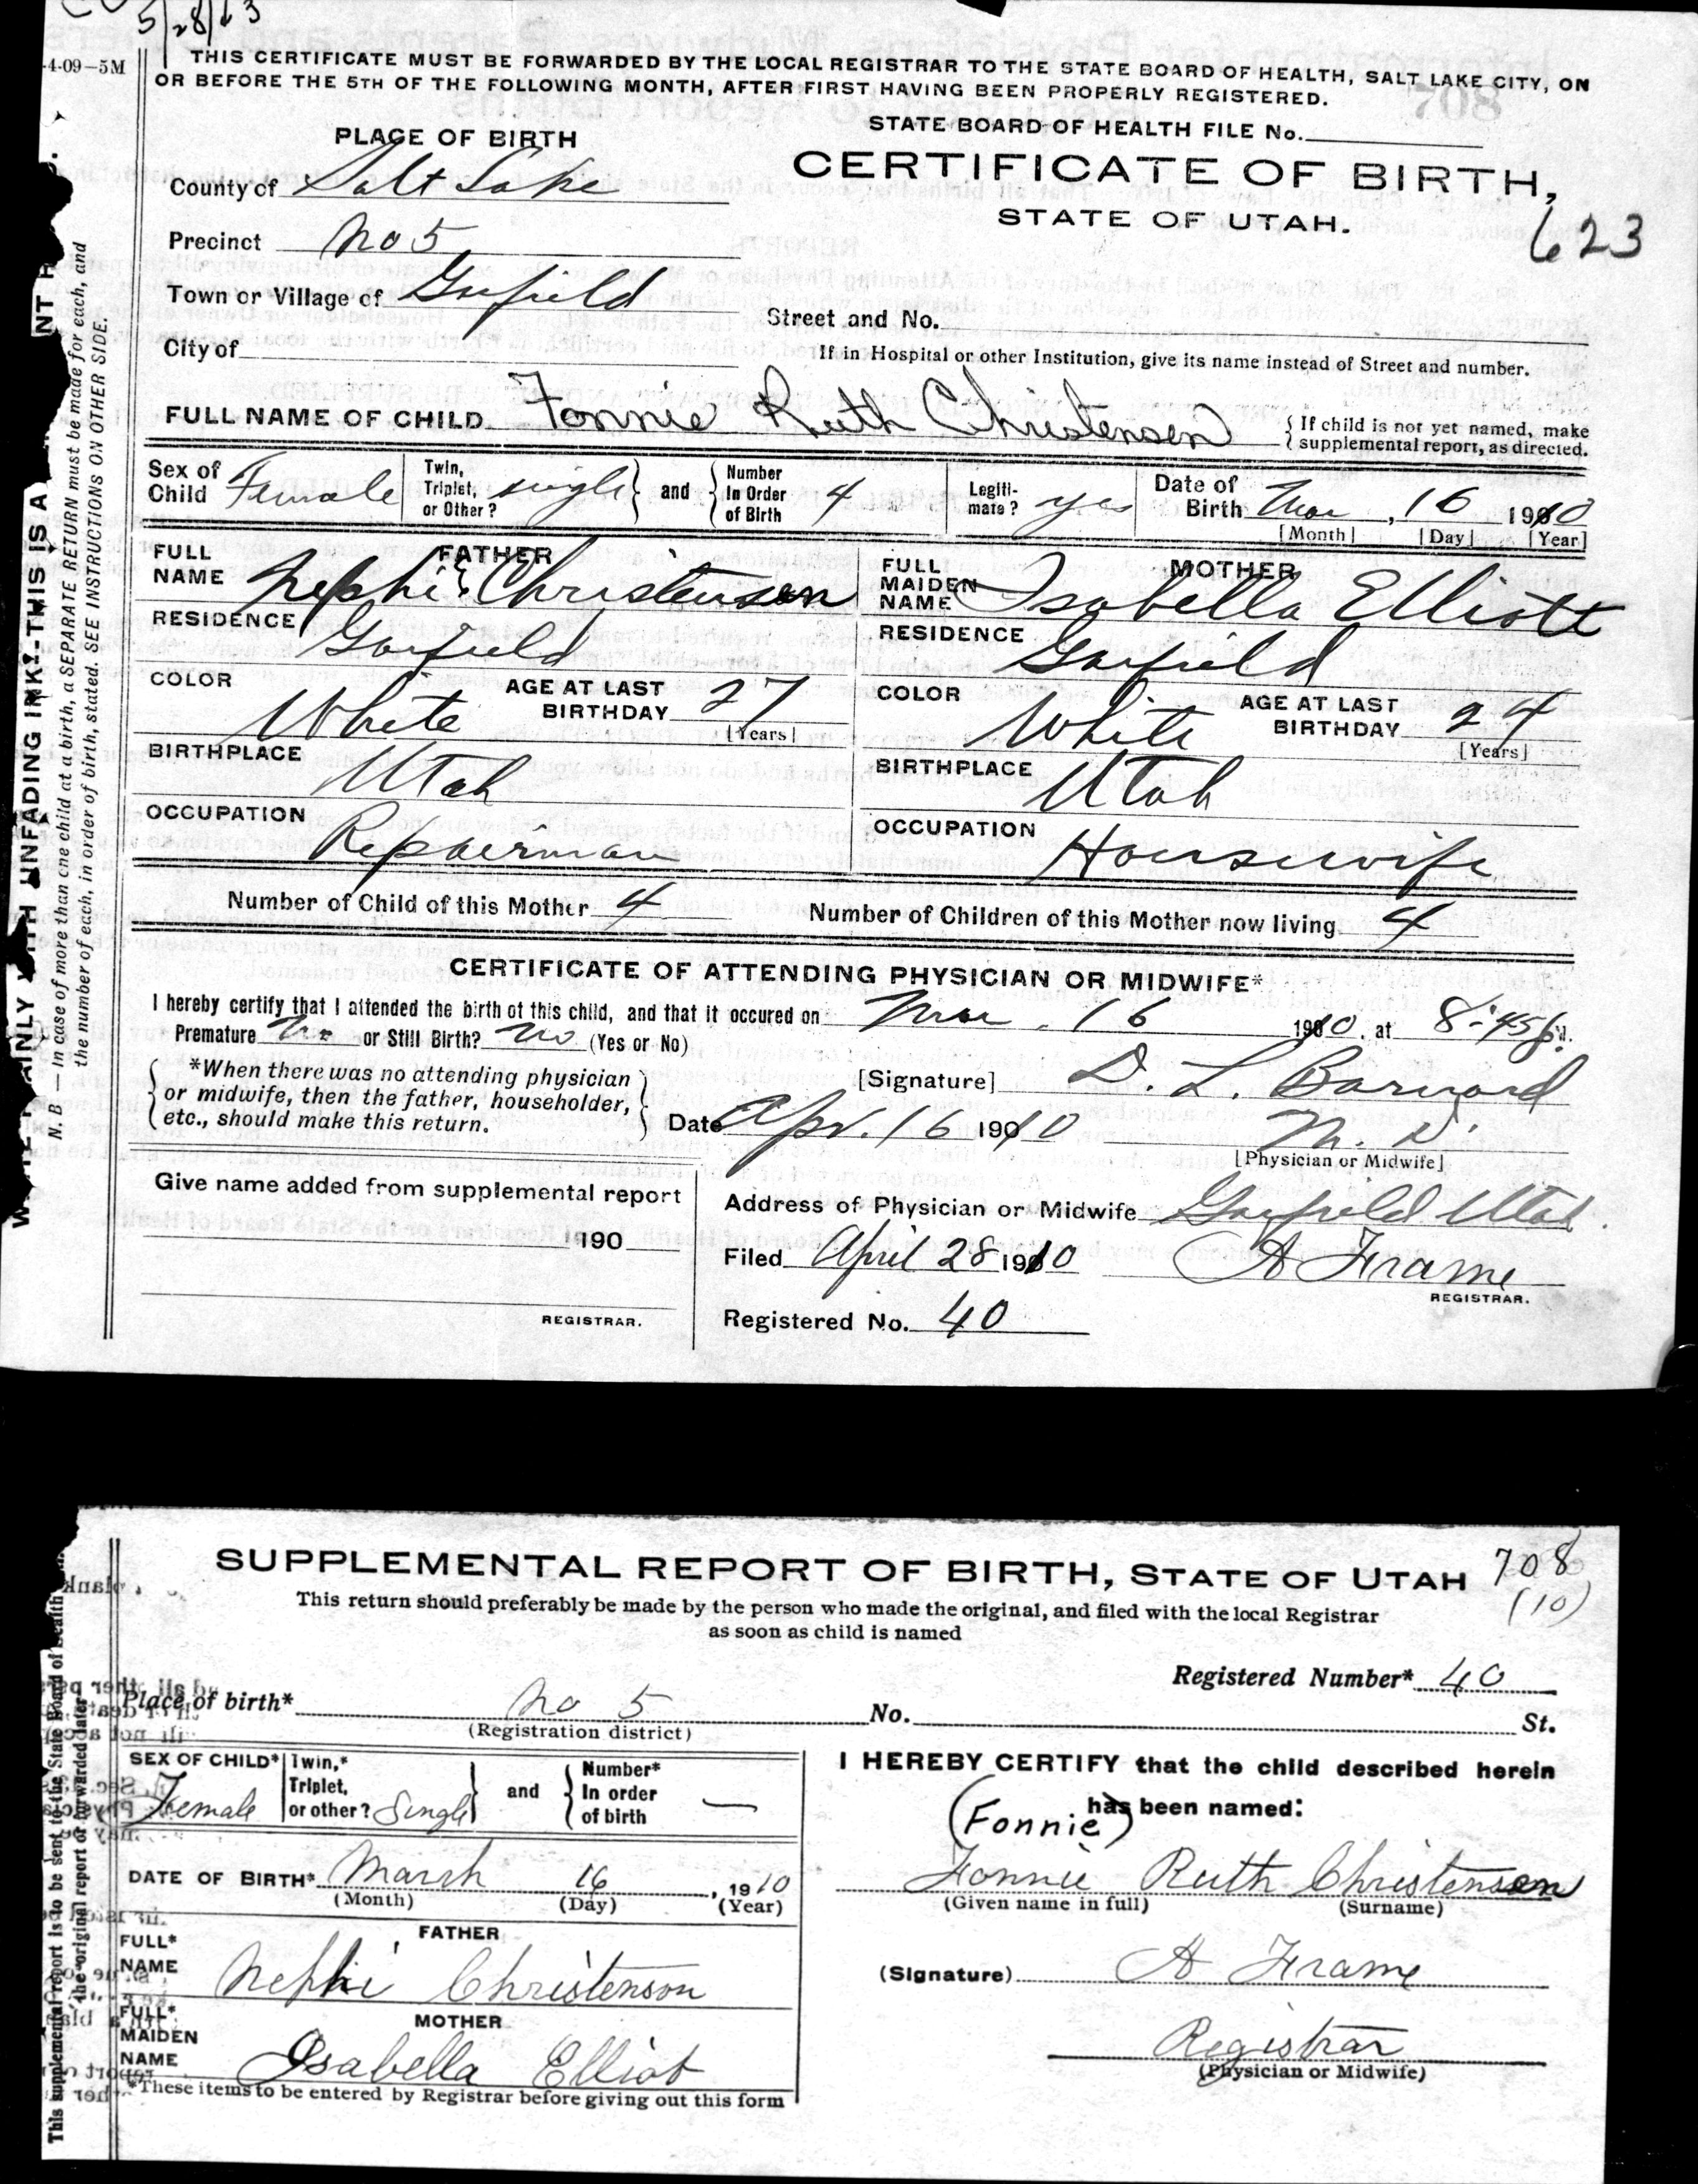 5/28/63
4-09-5M
THIS CERTIFICATE MUST BE FORWARDED BY THE LOCAL REGISTRAR TO THE STATE BOARD OF HEALTH, SALT LAKE CITY, ON
OR BEFORE THE 5TH OF THE FOLLOWING MONTH, AFTER FIRST HAVING BEEN PROPERLY REGISTERED.
STATE BOARD OF HEALTH FILE No.
PLACE OF BIRTH
CERTIFICATE OF BIRTH,
STATE OF UTAH.
623
County of Salt Lake
Precinct No 5
Town or Village of Garfield
Street and No.
City of
If in Hospital or other Institution, give its name instead of Street and number.
FULL NAME OF CHILD Fonnie Ruth Christensen
{ If child is not yet named, make
supplemental report, as directed.
Sex of Child Female
Twin, Triplet, or Other? single } and { Number In Order of Birth 4
Legiti-mate? yes
Date of Birth Mar, 16 1910
[Month] [Day] [Year]
FATHER
FULL NAME Nephi Christensen
RESIDENCE Garfield
COLOR White AGE AT LAST BIRTHDAY 27
[Years]
BIRTHPLACE Utah
OCCUPATION Repairman
MOTHER
FULL MAIDEN NAME Isabella Elliott
RESIDENCE Garfield
COLOR White AGE AT LAST BIRTHDAY 24
[Years]
BIRTHPLACE Utah
OCCUPATION Housewife
Number of Child of this Mother 4 Number of Children of this Mother now living 4
CERTIFICATE OF ATTENDING PHYSICIAN OR MIDWIFE*
I hereby certify that I attended the birth of this child, and that it occured on Mar. 16 1910, at 8:45 P.M.
Premature No or Still Birth? No (Yes or No)
{ *When there was no attending physician
or midwife, then the father, householder,
etc., should make this return. }
[Signature] D. L. Barnard
Date Apr. 16 1910 M. D.
[Physician or Midwife]
Give name added from supplemental report
190
REGISTRAR.
Address of Physician or Midwife Garfield Utah.
Filed April 28 1910 A Frame
REGISTRAR.
Registered No. 40
UNFADING INK-THIS IS A
N. B — In case of more than one child at a birth, a SEPARATE RETURN must be made for each, and
the number of each, in order of birth, stated. SEE INSTRUCTIONS ON OTHER SIDE.
SUPPLEMENTAL REPORT OF BIRTH, STATE OF UTAH 708
(10)
This return should preferably be made by the person who made the original, and filed with the local Registrar
as soon as child is named
Registered Number* 40
Place of birth* No 5 No. St.
(Registration district)
SEX OF CHILD* Female
Twin,* Triplet, or other? Single } and { Number* In order of birth —
DATE OF BIRTH* March 16, 1910
(Month) (Day) (Year)
FATHER
FULL* NAME Nephi Christenson
MOTHER
FULL* MAIDEN NAME Isabella Elliot
*These items to be entered by Registrar before giving out this form
I HEREBY CERTIFY that the child described herein
has been named:
(Fonnie)
Fonnie Ruth Christensen
(Given name in full) (Surname)
(Signature) A Frame
Registrar
(Physician or Midwife)
This supplemental report is to be sent to the State Board of Health
the original report or forwarded later